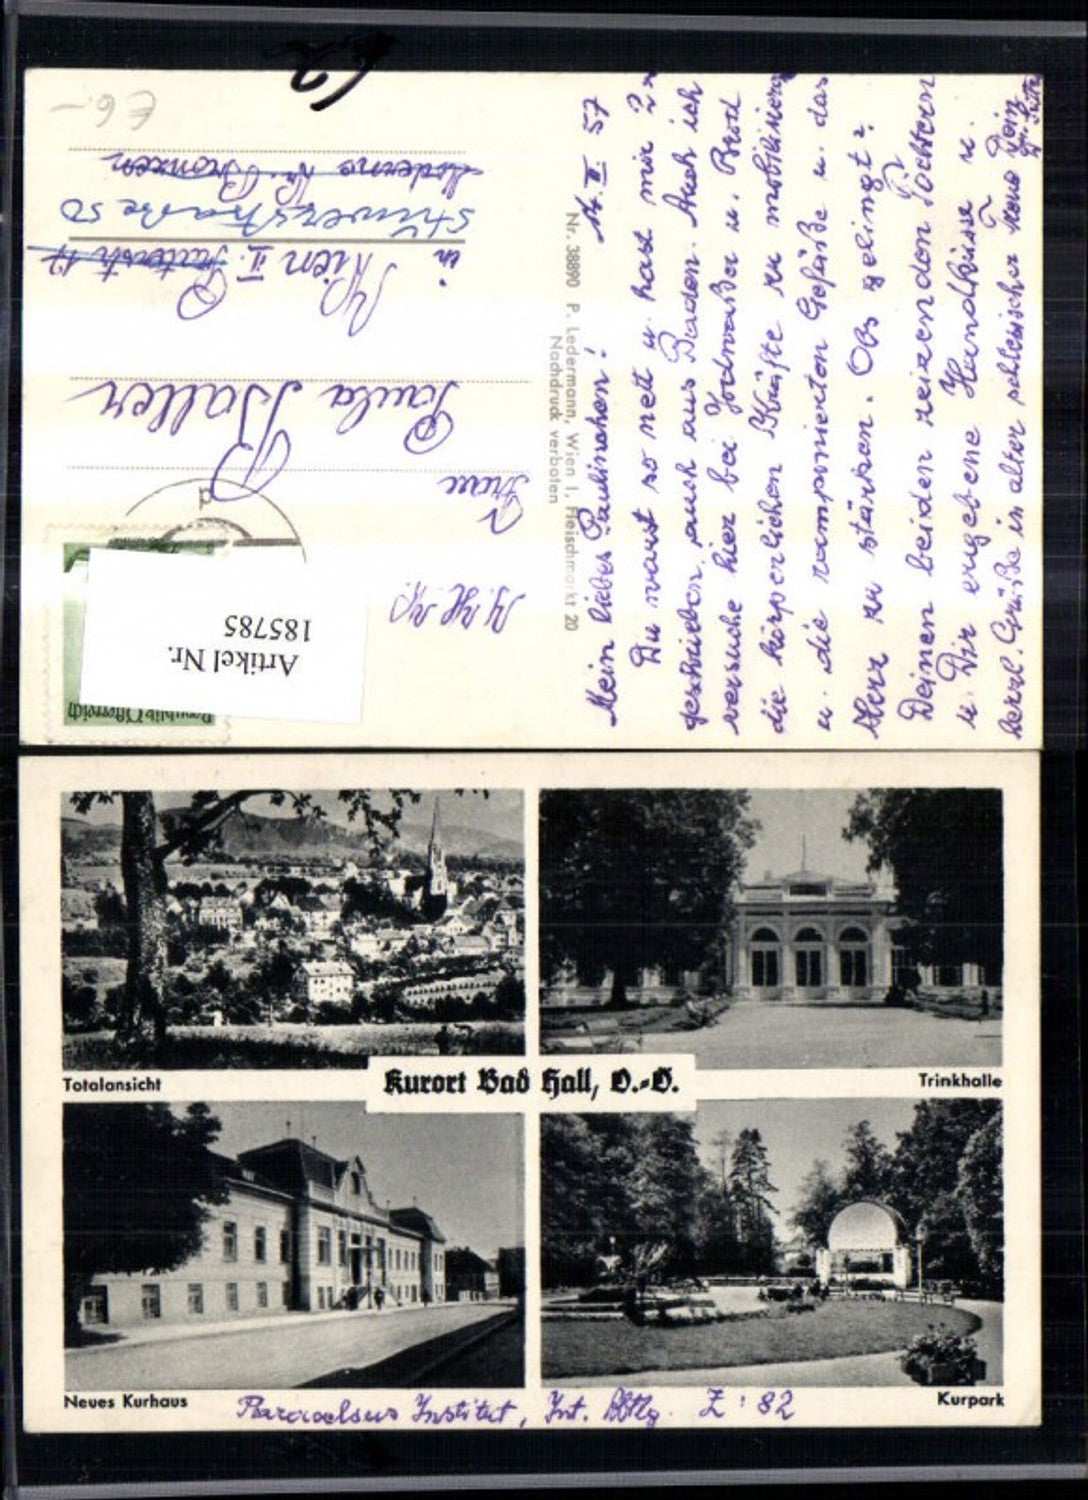 € 6.-
Moderne Kr. Bronzen
Stuwerstraße 50
in Wien II.
Frau
Paula Baller
Artikel Nr.
185785
Republik Österreich
Nr. 38890 P. Ledermann, Wien I, Fleischmarkt 20
Nachdruck verboten
57
Mein liebes Paulinchen!
Du warst so nett u. hast mir 2x
geschrieben, auch aus Baden. Auch ich
versuche hier bei Jodwasser u. Brot
die körperlichen Kräfte zu mobilisieren
u. die ramponierten Gefäße u. das
Herz zu stärken. Obs gelingt?
Deinen beiden reizenden Töchtern
u. Dir ergebene Handküsse u.
herzl. Grüße in alter
Totalansicht
Trinkhalle
Kurort Bad Hall, O.-Ö.
Neues Kurhaus
Kurpark
Paracelsus Institut, Int. Abtlg. Z: 82